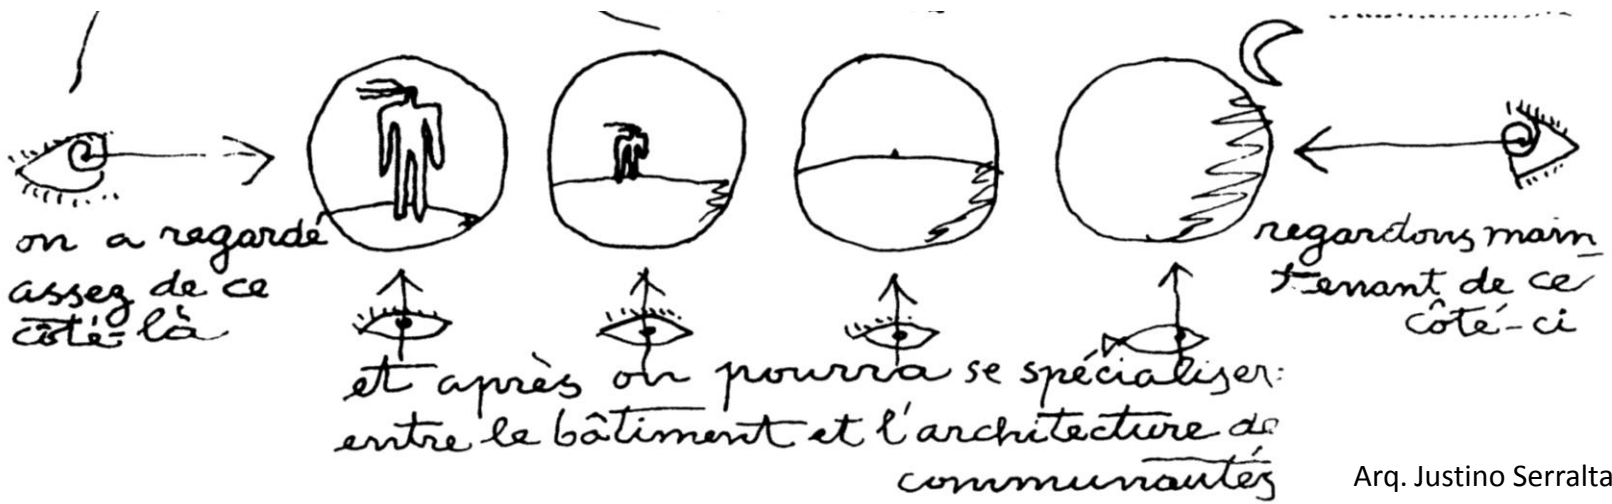 on a regardé
assez de ce
côté-là
regardons main
tenant de ce
côté-ci
et après on pourra se spécialiser:
entre le bâtiment et l'architecture de
communautés
Arq. Justino Serralta